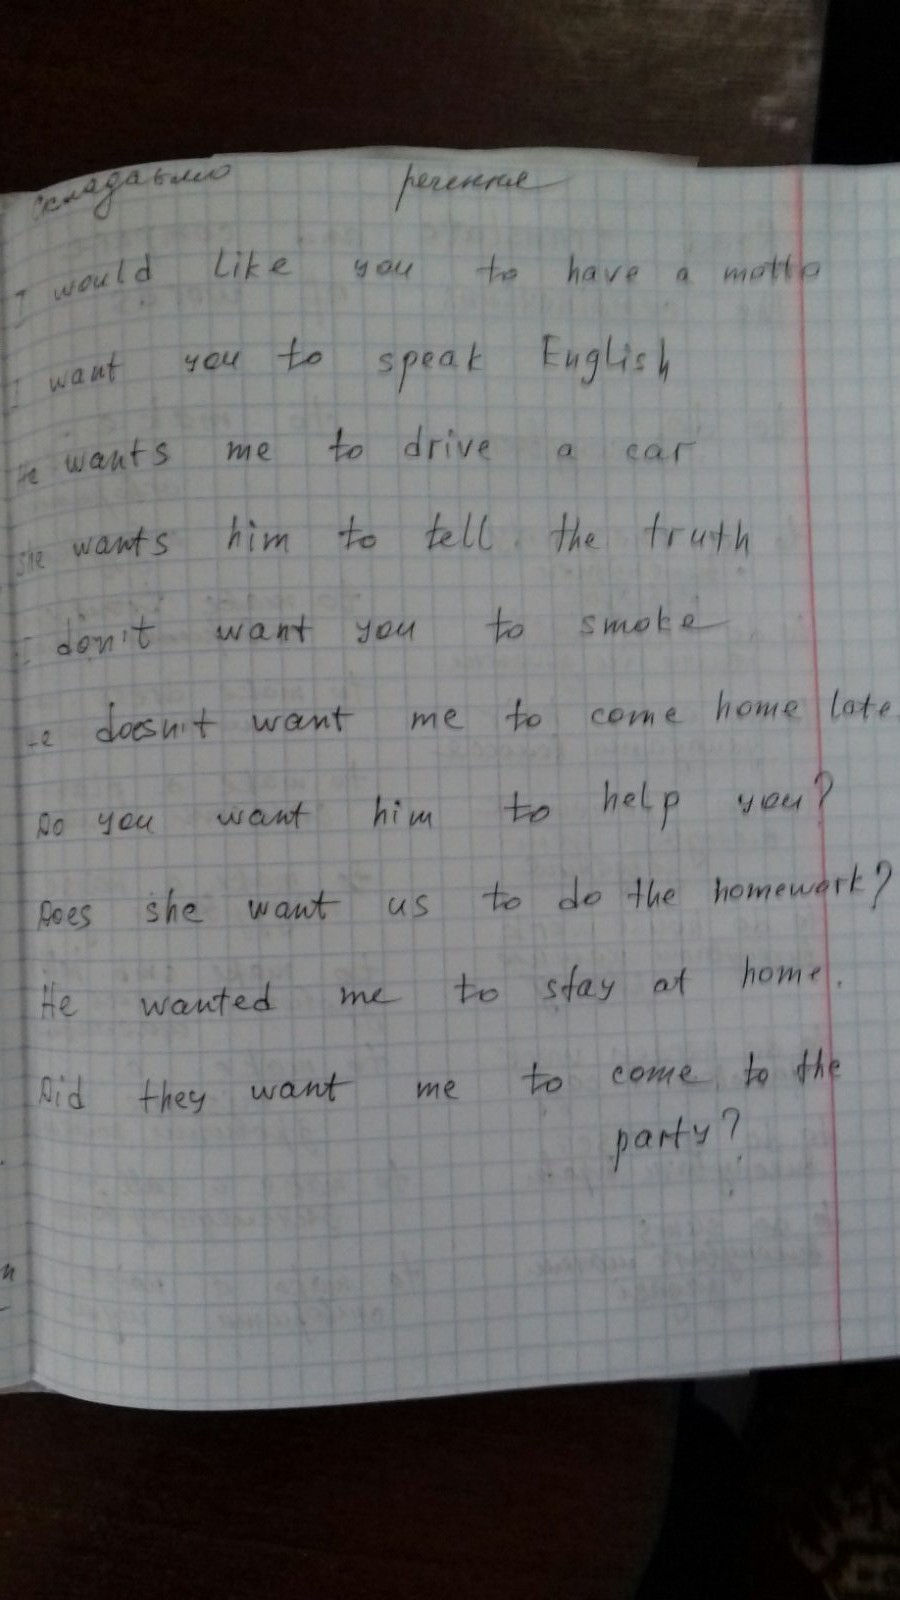 складаьмо речення
I would like you to have a motto
I want you to speak English
He wants me to drive a car
She wants him to tell the truth
I don't want you to smoke
He doesn't want me to come home late
Do you want him to help you?
Does she want us to do the homework?
He wanted me to stay at home.
Did they want me to come to the
party?